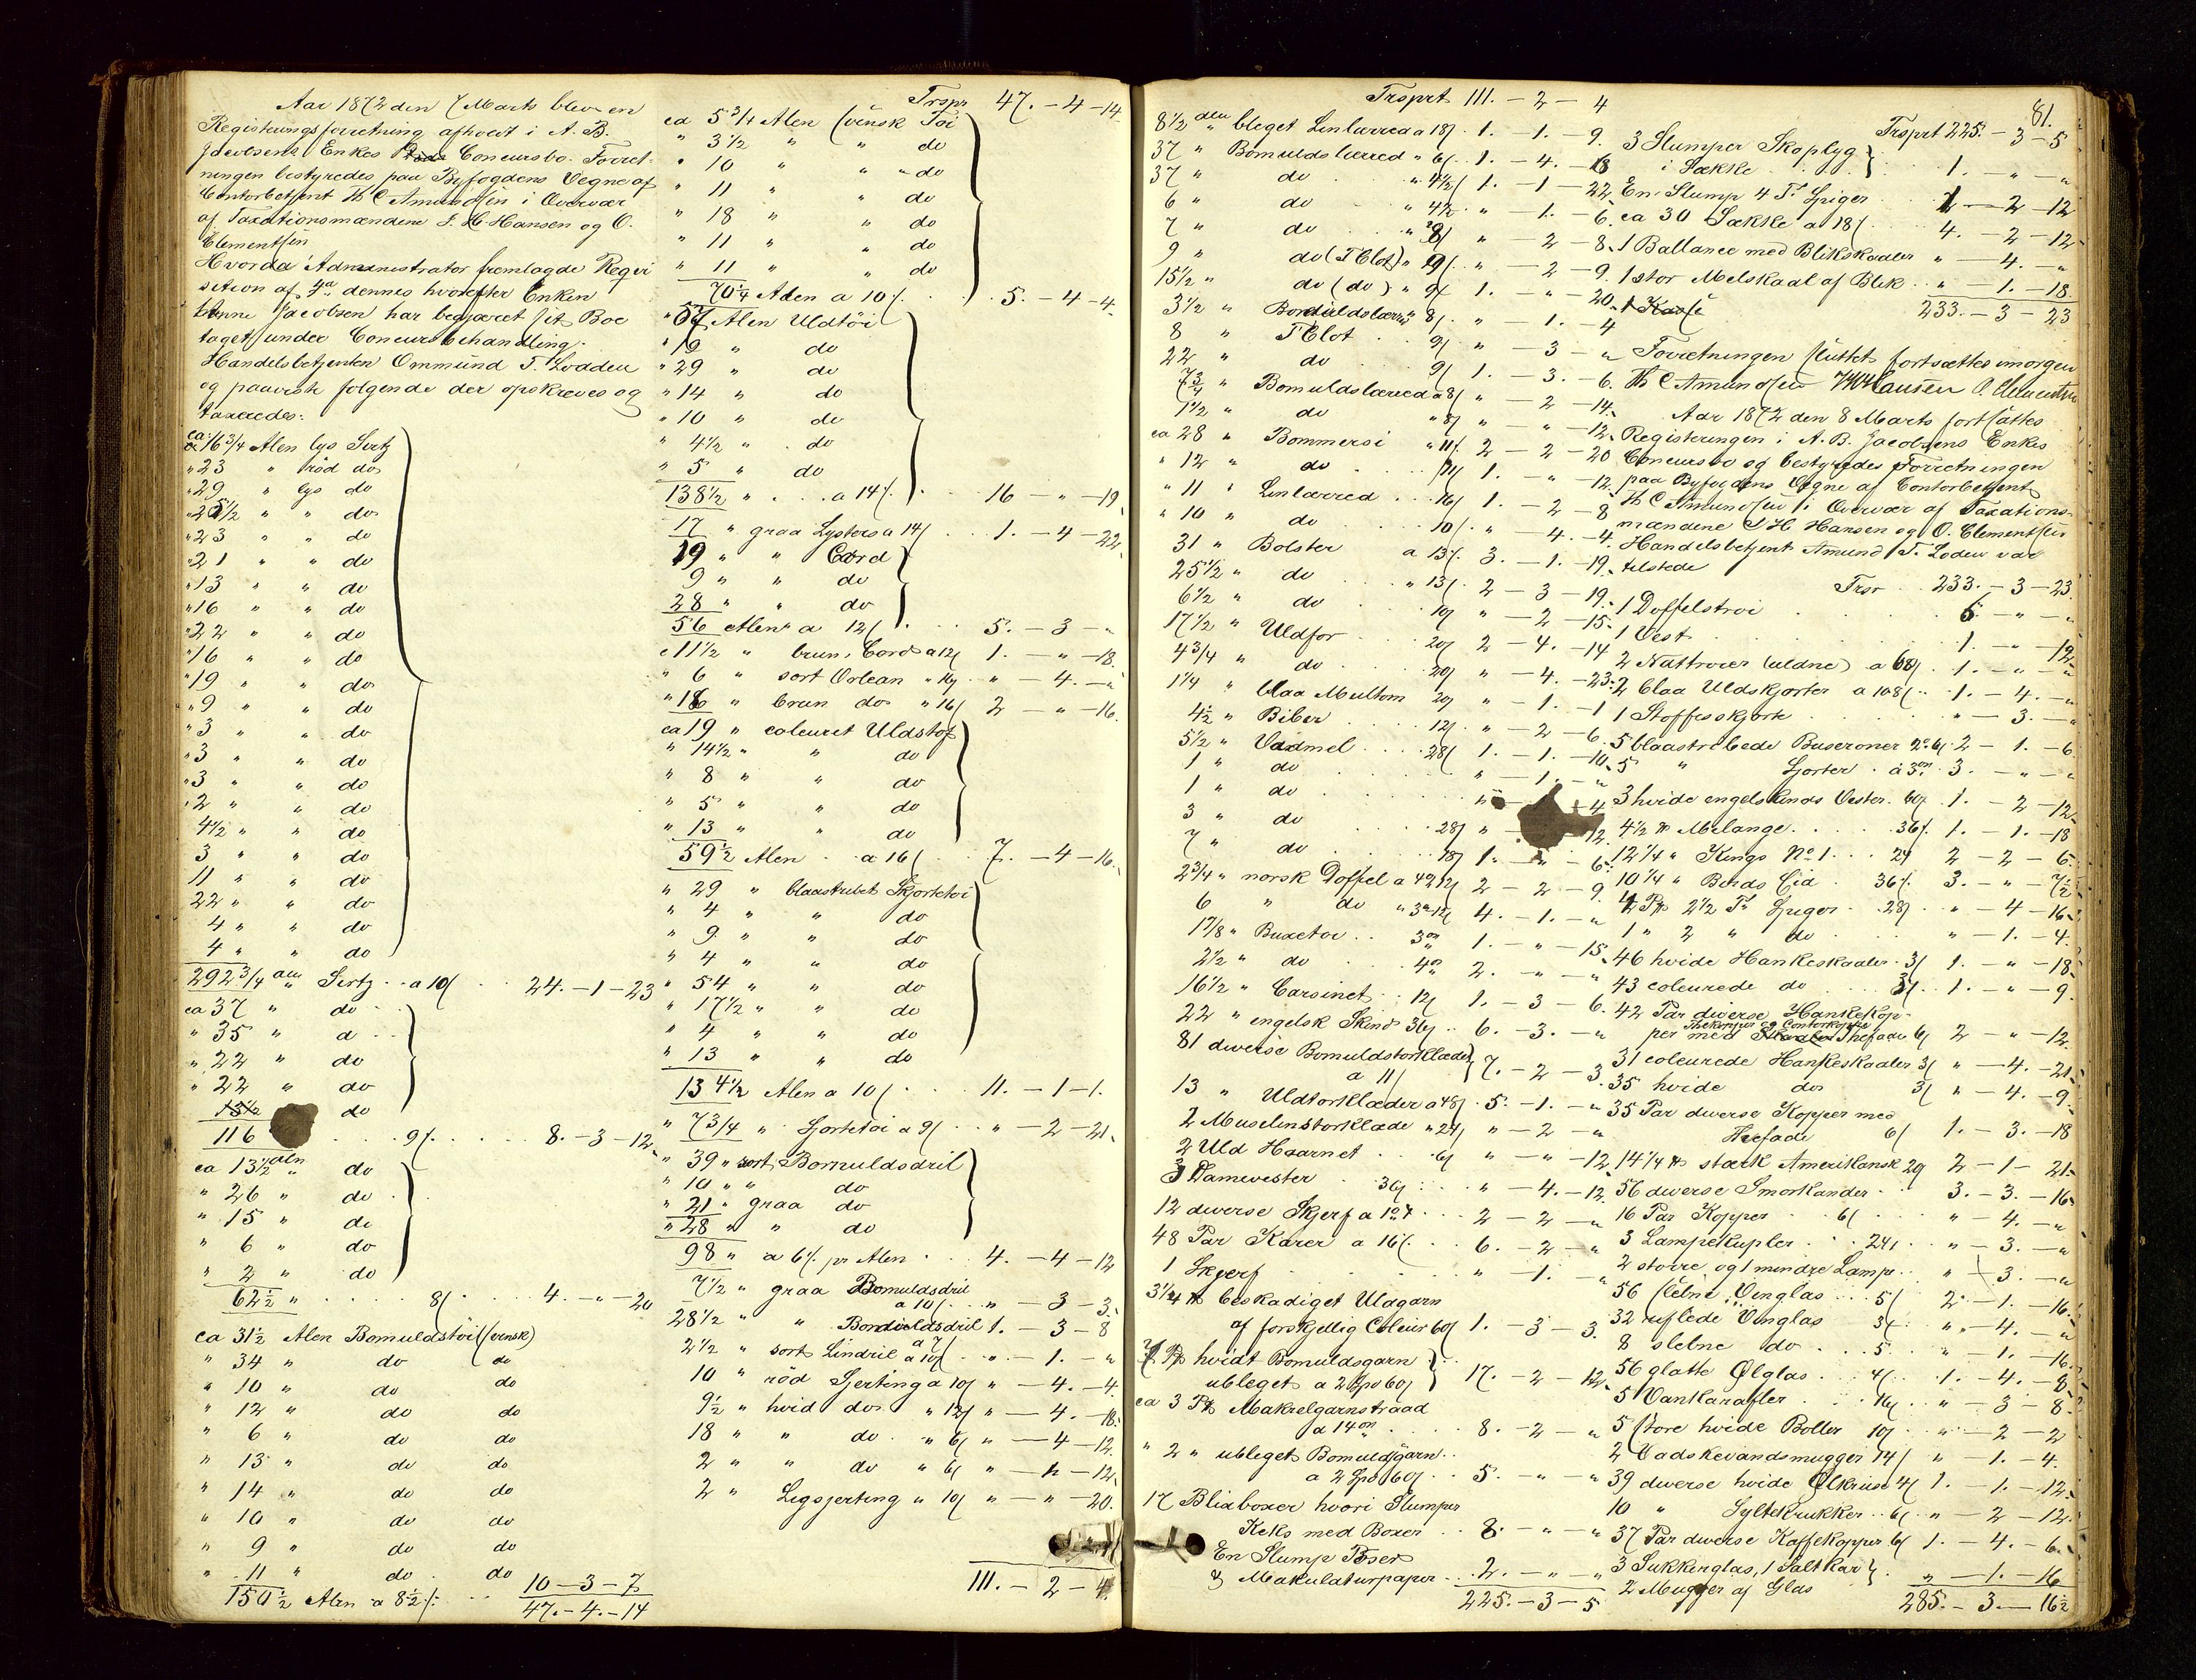 Aar 1872 den 7 Marts blev en
Registeringsforretning afholdt i A. B.
Jacobsens Enkes Concursbo. Forret-
ningen bestyredes paa Byfogdens Vegne af
Contorbetjent Th C Amundsen i Overvær
af Taxationsmændene S. H. Hansen og O.
Clementsen
Hvorda Administrator fremlagde Reqvi
sition af dennes hvorefter Enken
Jacobsen har begjæret sit Boe
taget under Concursbehandling.
Handelsbetjenten Ommund T. Lodden
og paaviste følgende der opskreves og
taxeredes:
ca 16 3/4 Alen lys Sirtz
" 23 " rød do
" 29 " lys do
" 25 1/2 " " do
" 23 " " do
" 21 " " do
" 13 " " do
" 16 " " do
" 22 " " do
" 16 " " do
" 19 " " do
" 9 " " do
" 3 " " do
" 3 " " do
" 3 " " do
" 2 " " do
4 1/2 " " do
3 " " do
11 " " do
22 " " do
4 " " do
4 " " do
292 3/4 alen Sirtz a 10/ 24.-1-23
ca 37 " do
" 35 " do
" 22 " do
" 22 " do
do
116 9/. 8.-3-12
ca 13 1/2 aln do
" 26 " do
" 15 " do
" 6 " do
" 2 " do
62 1/2 " 8/ 4.-"-20
ca 31 1/2 Alen Bomuldstöi (svensk)
" 34 " do do
" 10 " do do
" 12 " do do
" 6 " do do
" 13 " do do
" 14 " do do
" 10 " do do
" 9 " do do
" 11 " do do
150 1/2 Alen a 8 1/2 /. 10-3-7
47.-4.-14
Trspr 47.-4-14
ca 5 3/4 Alen svensk Töi
" 3 1/2 " " do
" 10 " " do
" 11 " " do
" 18 " " do
" 11 " " do
" 11 " " do
70 1/4 Alen a 10/. 5.-4-4
" 57 Alen Uldtöi
" 19 " do
" 29 " do
" 14 " do
" 10 " do
" 4 1/2 " do
" 5 " do
138 1/2 " a 14/. 16-"-19
17 " graa Lysters a 14/ 1.-4-22
19 " " Cord
9 " " do
28 " " do
56 Alen a 12/. 5.-3-"
" 11 1/2 " brun Cord a 12/ 1.-"-18
" 6 " sort Orlean " 16/ "-4.-"
" 18 " brun do " 16/ 2-"-16
ca 19 " couleuret Uldstof
" 14 1/2 " " do
" 8 " " do
" 5 " " do
" 13 " " do
59 1/2 Alen a 16/ 7.-4-16
" 29 " blaastribet Skjortetöi
" 4 " " do
" 9 " " do
" 4 " " do
" 54 " " do
" 17 1/2 " " do
" 4 " " do
" 13 " " do
134 1/2 Alen a 10/ 11.-1-1.
" 7 3/4 " Sjortetöi a 9/ "-2-21
" 39 " sort Bomuldsdril
" 10 " " do
" 21 " graa do
" 28 " " do
98 " a 6/. pr Alen 4.-4-12
7 1/2 " graa Bomuldsdril
a 10/. "-3-3
28 1/2 " " Bomuldsdril 1.-3-8
a 7/
2 1/2 " sort Lindril a 10/ "-1.-"
10 " röd Sjerting a 10/ "-4.-4
9 1/2 " hvid do " 12/ "-4.-18
18 " " do " 6/ "-4-12
2 " " do " 6/ "-"-12
2 " Ligsjerting " 10/ "-"-20.
111.-2-4
Trsprt 111.-2-4
8 1/2 alen bleget Linlærred a 18/. 1.-1.-9.
37 " Bomuldslærred " 6/. 1.-4.-18
37 " do " 4 1/2/ 1.-1-22
6 " do " 4 1/2 "-1.-6.
7 " do " 8/ "-2-8.
9 " do (T Clot) " 9/. "-2-9.
15 1/2 " do (do) " 9/ 1.-"-20.
3 1/2 " Bomuldslærred " 8/. "-1.-4
8 " T Clot 9/ "-3-"
22 " do 9/ 1.-3.-6.
7 3/4 " Bomuldslærred a 8/ "-2-14
1 1/2 " do " 8/ "-"-12.
ca 28 " Bommersi " 11/. 2-2-20
" 12 " do 1.-"-12.
" 11 " Linlærred 16/ 1.-2-8
" 10 " do 10/. "-4.-4.
31 " Bolster a 13/. 3.-1.-19.
25 1/2 " do " 13/. 2-3-19.
6 1/2 " do 10/ "-2-15.
17 1/2 " Uldfor 20/ 2-4.-14
4 3/4 " do 20/ "-4.-23.
1 1/4 " blaa Multom 20/ "-1.-1
4 1/2 " Biber 12/. "-2-6.
5 1/2 " Vadmel 28/ 1.-1.-10.
1 " do "-1.-"
1 " do 4
3 " do 28/ " 12.
7 " do 18/ 1.-"-6.
2 3/4 " norsk Doffel a 4 2-2-9
6 " do 4.-1.-"
1 7/8 " Buxetöi 3 1.-"-15.
2 1/2 " do 4 2.-"-"
16 1/2 " Carsinet 12/ 1.-3-6.
22 " engelsk Skind 36/ 6.-3.-"
81 diverse Bomuldstorklæder
a 11/ 7.-2-3.
13 " Uldtorklæder a 48/. 5.-1.-"
2 Muselinstorklæde " 24/ "-2-"
2 Uld Haarnet 6/ "-"-12
3 Damevester 36/ "-4.-12.
12 diverse Skjerf 2-2-"
48 Par Karer a 16/. 6.-2-"
1 Skjerf "-1.-"
3 1/4 beskadiget Uldgarn
af forskjellig Coleur 60/ 1.-3-3.
hvidt Bomuldsgarn
ubleget a 2 Spd 60/ 17.-2-12
ca 3 Makrelgarnstraad
a 14 8.-2-"
" 2 " ubleget Bomuldsgarn
a 2 Spd 60/ 5.-"-"
17 Blixboxer hvori Slumper
Keks med Boxer 8.-"-"
En Slump Poser
& Makulaturpapir 2.-"-"
225.-3-5
81.
Trsprt 225.-3-5
3 Slumper Skoplyg
i Sække 1.-"-"
En Slump 4 T. Spiger 1-2-12
ca 30 Sække a 18/ 4.-2-12
1 Ballance med Blikskaaler "-4.-"
1 stor Melskaal af Blik "-1.-18.
233.-3-23
Forretningen sluttet fortsættes imorgen
Th C Amundsen S H Hansen O. Clementsen
Aar 1872 den 8 Marts fortsattes
Registeringen i A. B. Jacobsens Enkes
Concursbo og bestyredes Forretningen
paa Byfogdens Vegne af Contorbetjent
Th C Amundsen i Overvær af Taxations-
mændene S H Hansen og O. Clementsen
Handelsbetjent Amund T. Loden var
tilstede
Trsr 233.-3-23.
1 Doffelströi 5.-"-"
1 Vest 1.-"-12
2 Nattröier (uldne) a 68/. 1.-"-"
2 blaa Uldskjorter a 108/. 1.-4.-"
1 Stoffesskjorte "-3.-"
5 blaastribede Buseroner 2-1.-6
5 " Sjorter a 3 3.-"-"
3 hvide engelskinds Vester 60/. 1.-2-12
4 1/2 Melange 36/. 1.-1.-18
12 1/4 " Kings No 1. 24 2-2-6
10 1/4 " Binds 36/. 3.-"-7 1/2
2 1/2 T Spiger 28/ "-4-16
1 " 2 " do "-1.-4.
46 hvide Hankeskaaler 3/ 1.-"-18
43 coleurede do 3/. 1.-"-9.
42 Par diverse Hankekop-
per med Thefade 6/ 2-"-12.
31 coleurede Hankeskaaler 3/ "-4.-21
35 hvide do 3/ "-4.-9
35 Par diverse Kopper med
Thefade 6/ 1.-3.-18
14 1/4 stærk Amerikansk 2-1-21
56 diverse Smorkander 3.-3.-16
16 Par Kopper 6/ "-4.-"
3 Lampekupler 24/ "-3.-"
2 større og 1 mindre Lampe "-3.-"
56 slebne Vinglas 5/ 2-1.-16
32 uslebe Vinglas 3/. "-4.-"
8 slebne do 5. "-1.-16.
56 glatte Ølglas 4/ 1.-4.-8
5 Vankarafler 16/ "-3-8
5 store hvide Boller 10/ "-2-2
2 Vadskevandsmugger 14/ "-1.-4.
39 diverse hvide Ølkruse 4/ 1.-1.-12.
10 " Syltekrukker 6/ "-2-12.
37 Par diverse Kaffekopper 6/ 1.-4.-6.
3 Sukkerglas, 1 Saltkar
2 Mugger af Glas "-1.-16
285.-3.-16 1/2